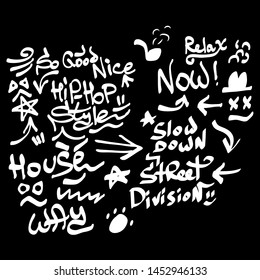 So Good
Nice
Hip-Hop
Style
House
Way
Relax
Now!
Slow
Down
Street
Division!!
shutterstock.com · 1452946133